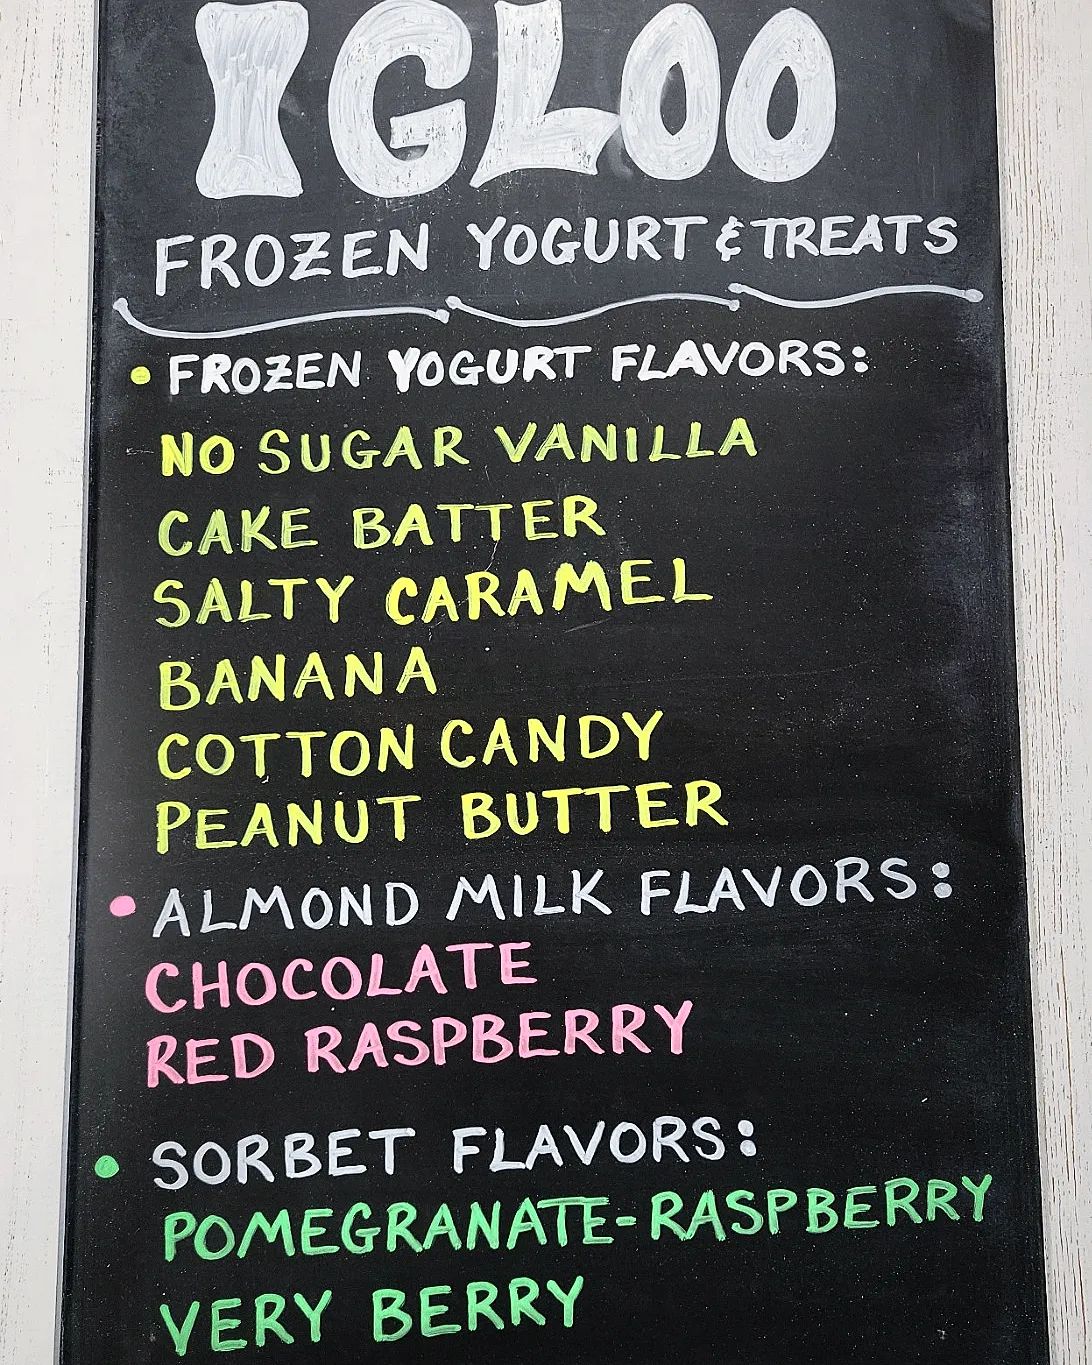 IGLOO
FROZEN YOGURT & TREATS
• FROZEN YOGURT FLAVORS:
NO SUGAR VANILLA
CAKE BATTER
SALTY CARAMEL
BANANA
COTTON CANDY
PEANUT BUTTER
• ALMOND MILK FLAVORS:
CHOCOLATE
RED RASPBERRY
• SORBET FLAVORS:
POMEGRANATE-RASPBERRY
VERY BERRY